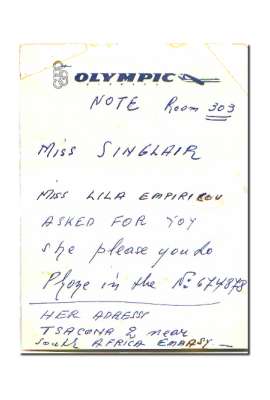 OLYMPIC
NOTE Room 303
Miss SINGLAIR
MISS LILA EMPIRICOU
ASKED FOR YOY
she please you do
Phoze in the No: 674878
HER ADRESS
TSACONA 2 near
South AFRICA EMBASY